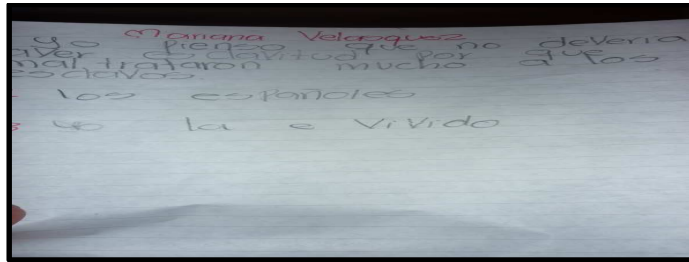 Mariana Velasquez
yo pienso que no deveria
aver esclavitud por que
mal trataron mucho a los
esclavos
los españoles
3 yo la e vivido